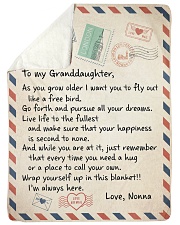 To my Granddaughter,
As you grow older I want you to fly out
like a free bird.
Go forth and pursue all your dreams.
Live life to the fullest
and make sure that your happiness
is second to none.
And while you are at it, just remember
that every time you need a hug
or a place to call your own.
Wrap yourself up in this blanket!!
I'm always here.
Love, Nonna